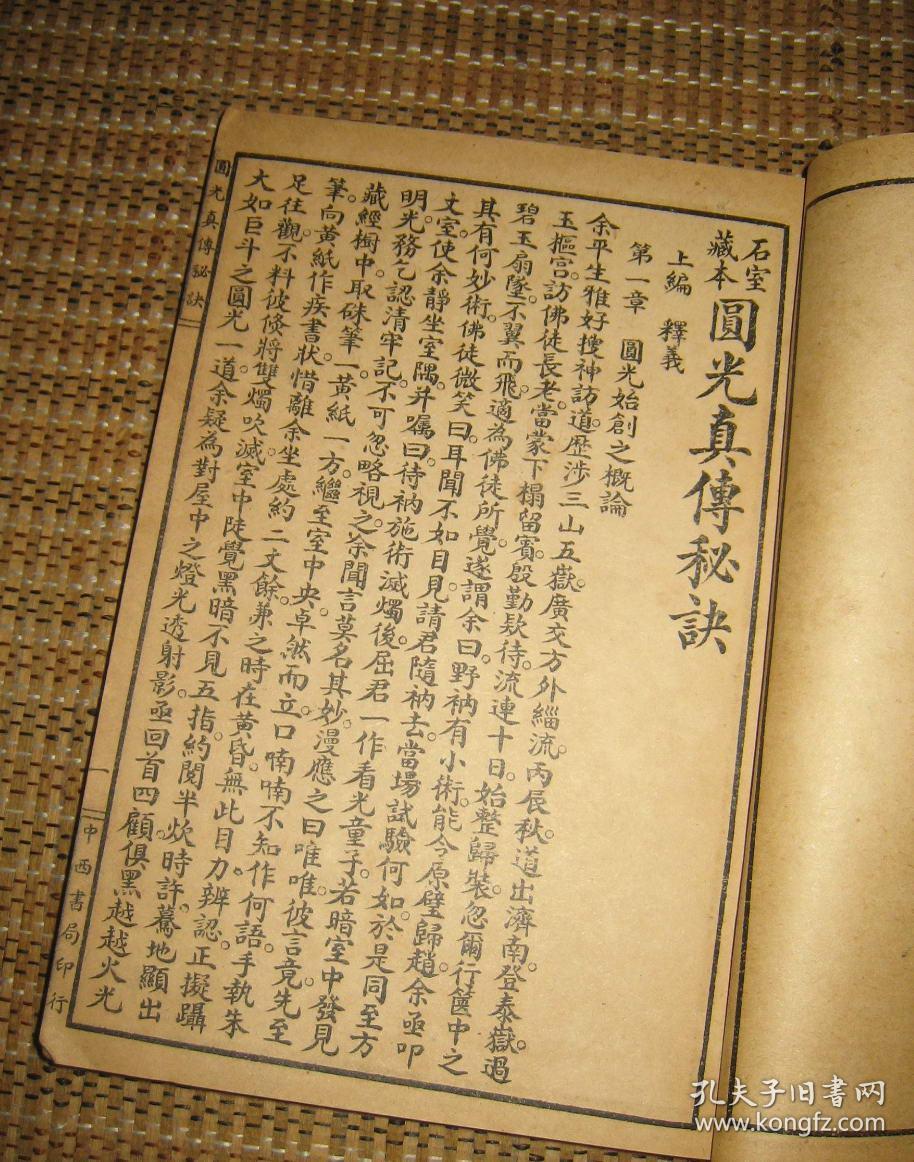 石室藏本
圓光真傳秘訣
上編 釋義
第一章 圓光始創之概論
余平生雅好搜神訪道。歷涉三山五嶽。廣交方外緇流。丙辰秋。道出濟南。登泰嶽。過
玉樞宮。訪佛徒長老。當蒙下榻留賓。殷勤欵待。流連十日。始整歸裝。忽爾行篋中之
碧玉扇墜。不翼而飛。適為佛徒所覺。遂謂余曰。野衲有小術。能令原璧歸趙。余亟叩
其有何妙術。佛徒微笑曰。耳聞不如目見。請君隨衲去。當場試驗何如。於是同至方
文室。使余靜坐室隅。并嘱曰。待衲施術滅燭後。屈君一作看光童子。若暗室中發見
明光。務乞認清牢記。不可忽略視之。余聞言莫名其妙。漫應之曰唯唯。彼言竟。先至
藏經櫥中。取硃筆一。黃紙一方。繼至室中央。卓然而立。口喃喃不知作何語。手執朱
筆。向黃紙作疾書狀。惜離余坐處約二丈餘。兼之時在黃昏。無此目力辨認。正擬躡
足往觀。不料彼倐將雙燭吹滅。室中陡覺黑暗。不見五指。約閱半炊時許。驀地顯出
大如巨斗之圓光一道。余疑為對屋中之燈光透射影。亟回首四顧。俱黑越越火光
圓光真傳秘訣
一
中西書局印行
孔夫子旧书网
www.kongfz.com